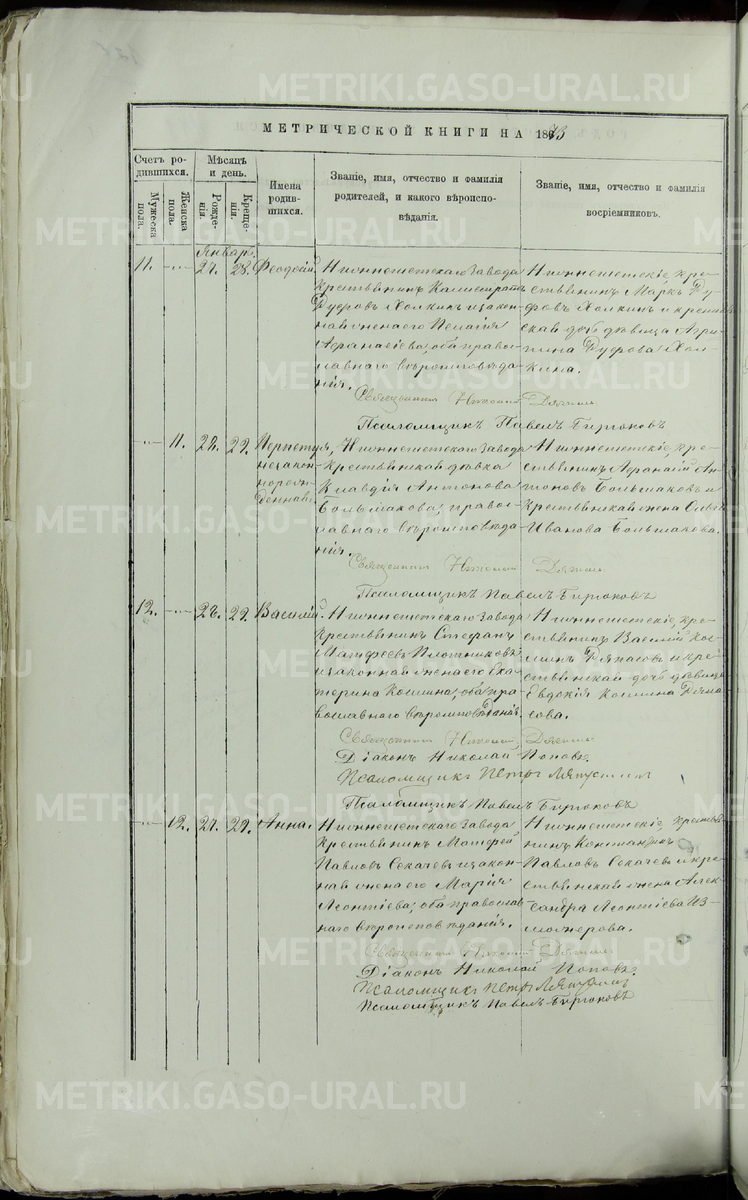 МЕТРИЧЕСКОЙ КНИГИ НА 1873
Счетъ ро-
дившихся.
Мужеска
пола.
Женска
пола.
Мѣсяцъ
и день.
Рожде-
нія.
Креще-
нія.
Имена
родив-
шихся.
Званіе, имя, отчество и фамилія
родителей, и какого вѣроиспо-
вѣданія.
Званіе, имя, отчество и фамилія
воспріемниковъ.
Январь.
11. 27. 28. Феодосій
Нижнеисетскаго Завода
Крестьянинъ Калистратъ
Дуфровъ Холкинъ и закон-
ная жена его Пелагія
Афанасіева, оба право-
славнаго вѣроисповѣда-
нія.
Нижнеисетскіе, кре-
стьянинъ Маркъ Ду-
фровъ Холкинъ и крестьян-
ская дочь дѣвица Агри-
пина Дуфрова Хол-
кина.
Священникъ
Псаломщикъ Павелъ Бирюковъ
11. 28. 29. Перпетуя,
незакон-
норож-
денная.
Нижнеисетскаго Завода
Крестьянская дѣвка
Клавдія Антонова
Большакова, право-
славнаго вѣроисповѣда-
нія.
Нижнеисетскіе, кре-
стьянинъ Афанасій Ан-
тоновъ Большаковъ и
Крестьянская жена
Иванова Большакова.
Священникъ
Псаломщикъ Павелъ Бирюковъ
12. 28. 29. Василій
Нижнеисетскаго Завода
Крестьянинъ Стефанъ
Матфеевъ Плотниковъ
и законная жена его Ека-
терина Космина, оба пра-
вославнаго вѣроисповѣданія.
Нижнеисетскіе, кре-
стьянинъ Василій Кос-
минъ и кре-
стьянская дочь дѣвица
Евдокія Космина
Священникъ
Діаконъ Николай Поповъ.
Псаломщикъ Петръ
Псаломщикъ Павелъ Бирюковъ
12. 27. 29. Анна.
Нижнеисетскаго Завода
Крестьянинъ Матфей
Павловъ Секачевъ и закон-
ная жена его Марія
Леонтіева, оба православ-
наго вѣроисповѣданія.
Нижнеисетскіе, крестья-
нинъ Константинъ
Павловъ Секачевъ и кре-
стьянская жена Алек-
сандра Леонтіева Из-
можерова.
Священникъ
Діаконъ Николай Поповъ.
Псаломщикъ Петръ
Псаломщикъ Павелъ Бирюковъ
METRIKI.GASO-URAL.RU